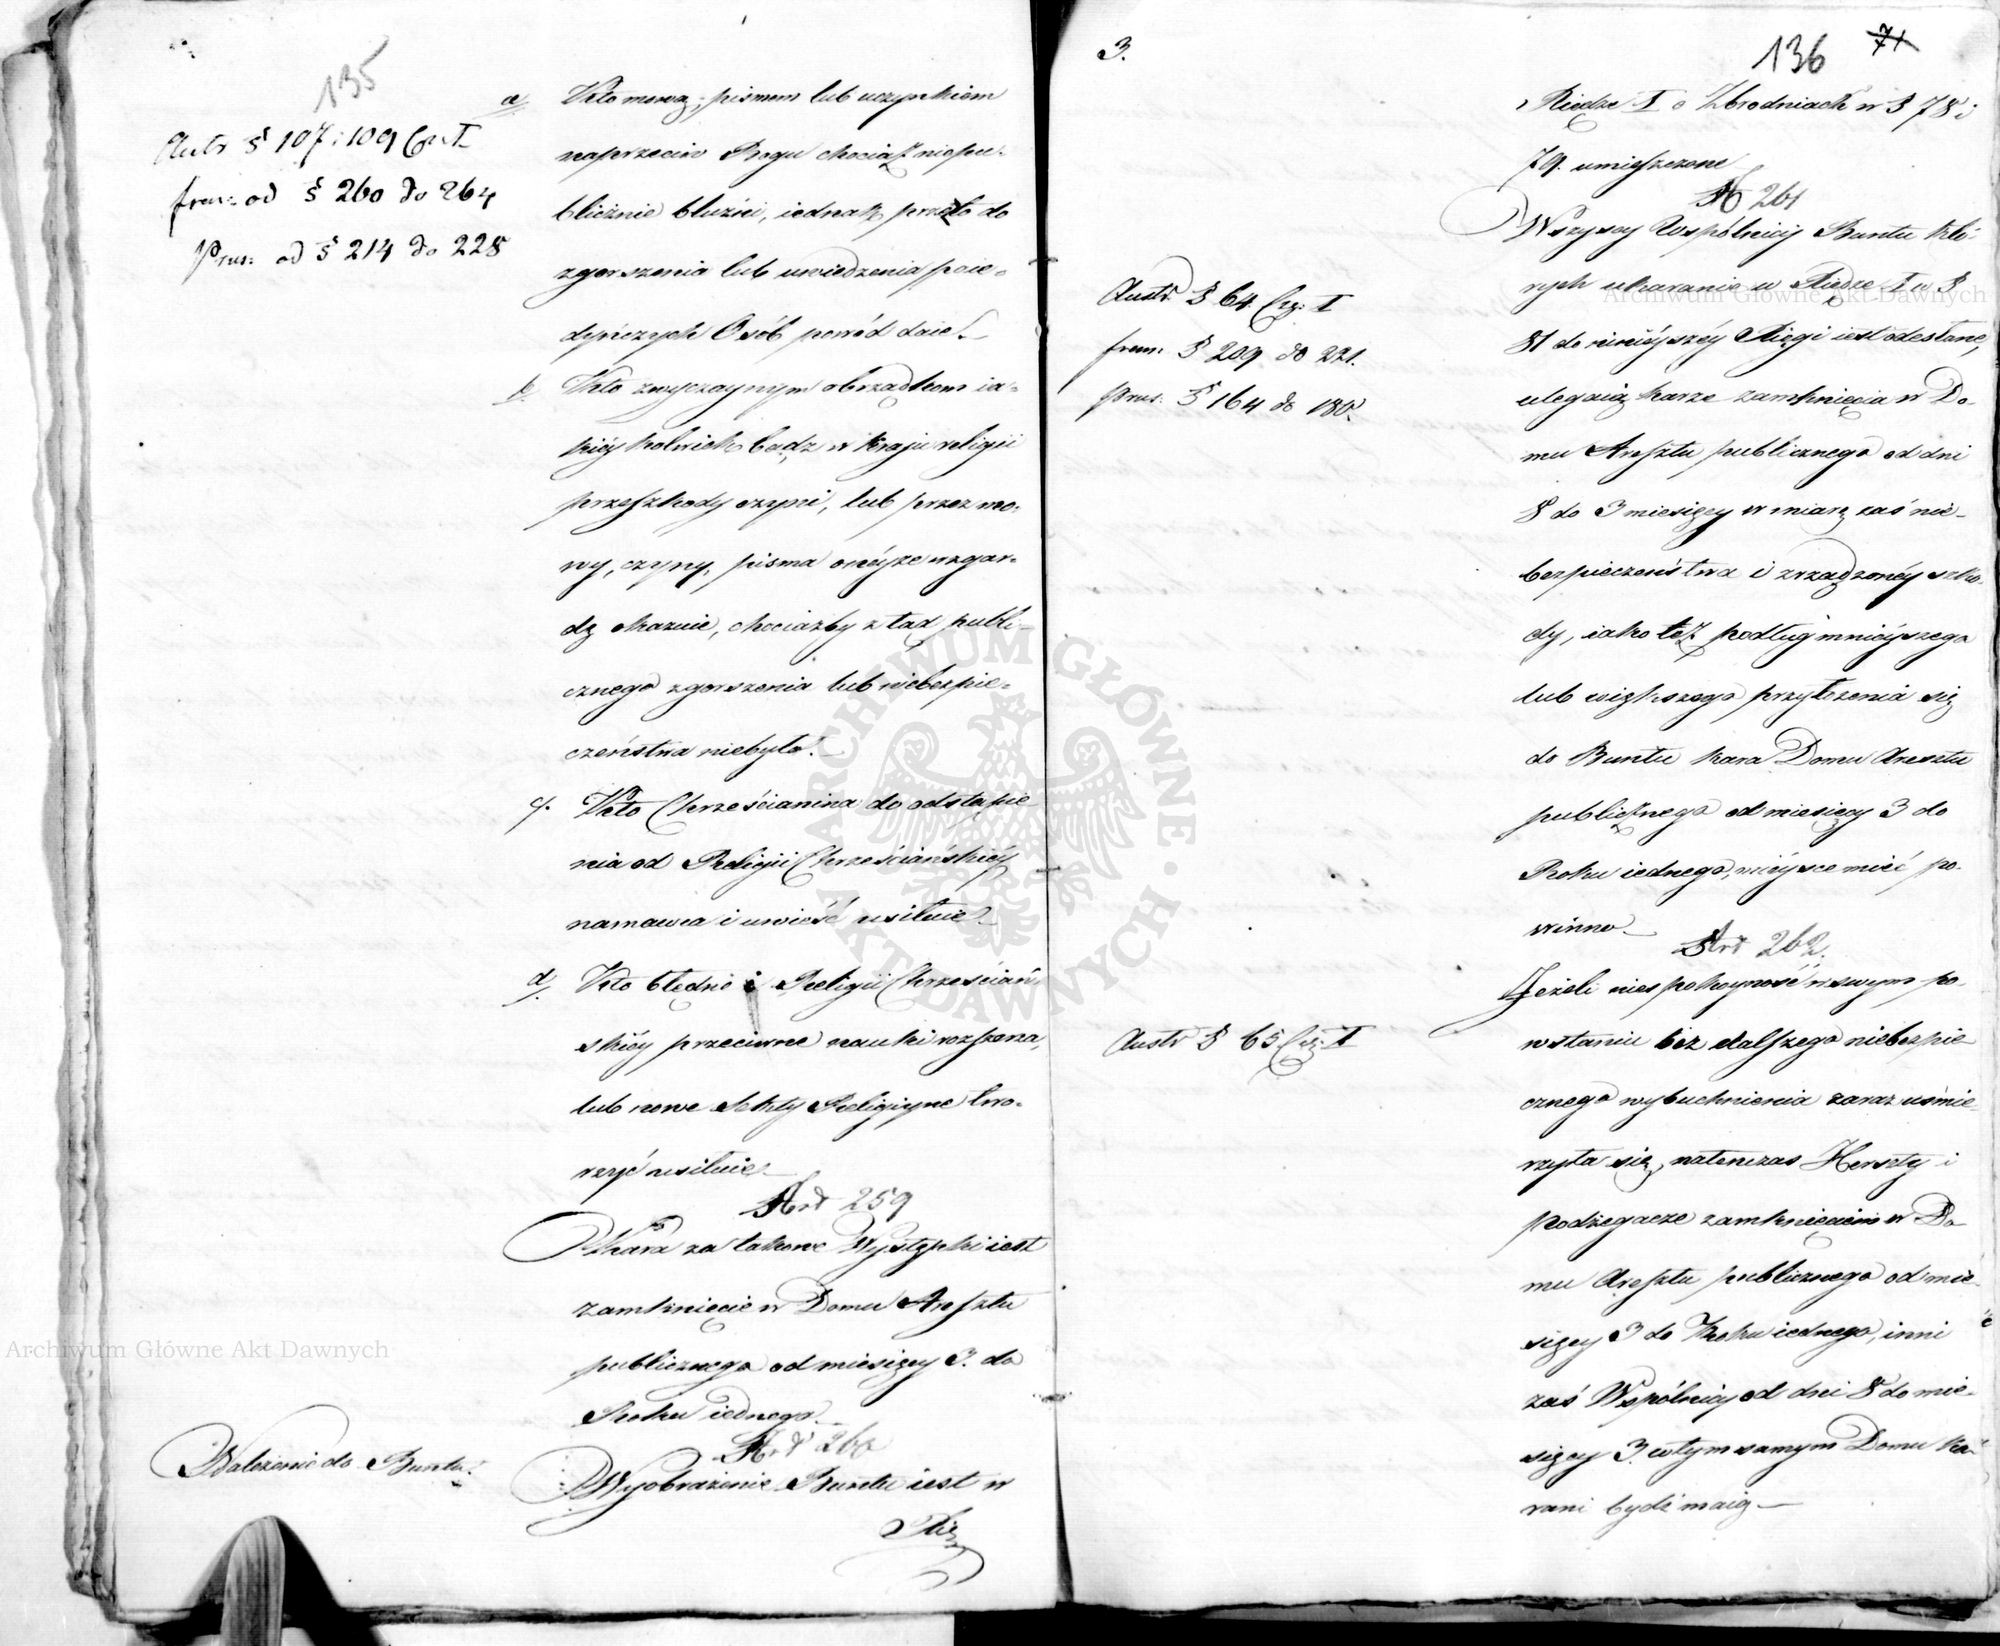 135
Austr § 107 i 109 Cz: I
franc: od § 260 do 264
Prus: od § 214 do 228
a/ Kto mową, pismem lub uczynkiem
naprzeciw Bogu chociaż niepu-
blicznie bluźni, iednak przeto do
zgorszenia lub uwiedzenia poie-
dyńczych Osób powód daie.
b. Kto zwyczaynym obrządkom ia-
kiéy kolwiek bądz w Kraju religii
przeszkody czyni, lub przez mo-
wy, czyny, pisma onéyże wzgar-
dę okazuie, chociażby z tąd publi-
cznego zgorszenia lub niebezpie-
czeństwa niebyło.
c/. Kto Chrześcianina do odstąpie
nia od Religii Chrześciańskiéy
namawia i uwieść usiłuie.
d/. Kto błędne i Religii Chrześciań-
skiéy przeciwne nauki rozszerza,
lub nowe Sekty Religiyne two-
rzyć usiłuie.
Art 259
Kara za takowe Występki iest
zamknięcie w Domu Aresztu
publicznego od miesięcy 3. do
Roku iednego.
Art 260
Należenie do Buntu.
Wyobrażenie Buntu iest w
Xię
3.
136 71
Xiędze I o Zbrodniach w § 78 i
79. umieszczone
Art 261
Wszyscy Wspólnicy Buntu któ-
rych ukaranie w Xiędze I w §
81 do ninieyszéy Xięgi iest odesłane,
ulegaią karze zamknięcia w Do-
mu Aresztu publicznego od dni
8 do 3 miesięcy w miarę zaś nie-
bezpieczeństwa i zrządzonéy szko-
dy, iako też podług mnieyszego
lub większego przyłożenia się
do Buntu kara Domu Aresztu
publicznego od miesięcy 3 do
Roku iednego, mieysce mieć po-
winno
Austr § 64. Cz: I
franc § 209 do 221.
Prus. § 164 do 180.
Art 262.
Jeżeli niespokoyność w swym po-
wstaniu bez dalszego niebezpie
cznego wybuchnienia zaraz uśmie-
rzyła się, natenczas Herszty i
podżegacze zamknięciem w Do
mu Aresztu publicznego od mie-
sięcy 3 do Roku iednego, inni
zaś Wspólnicy od dni 8 do mie-
sięcy 3. w tym samym Domu ka-
rani bydź maią
Austr § 65 Cz: I
Archiwum Główne Akt Dawnych
Archiwum Główne Akt Dawnych
ARCHIWUM GŁÓWNE AKT DAWNYCH